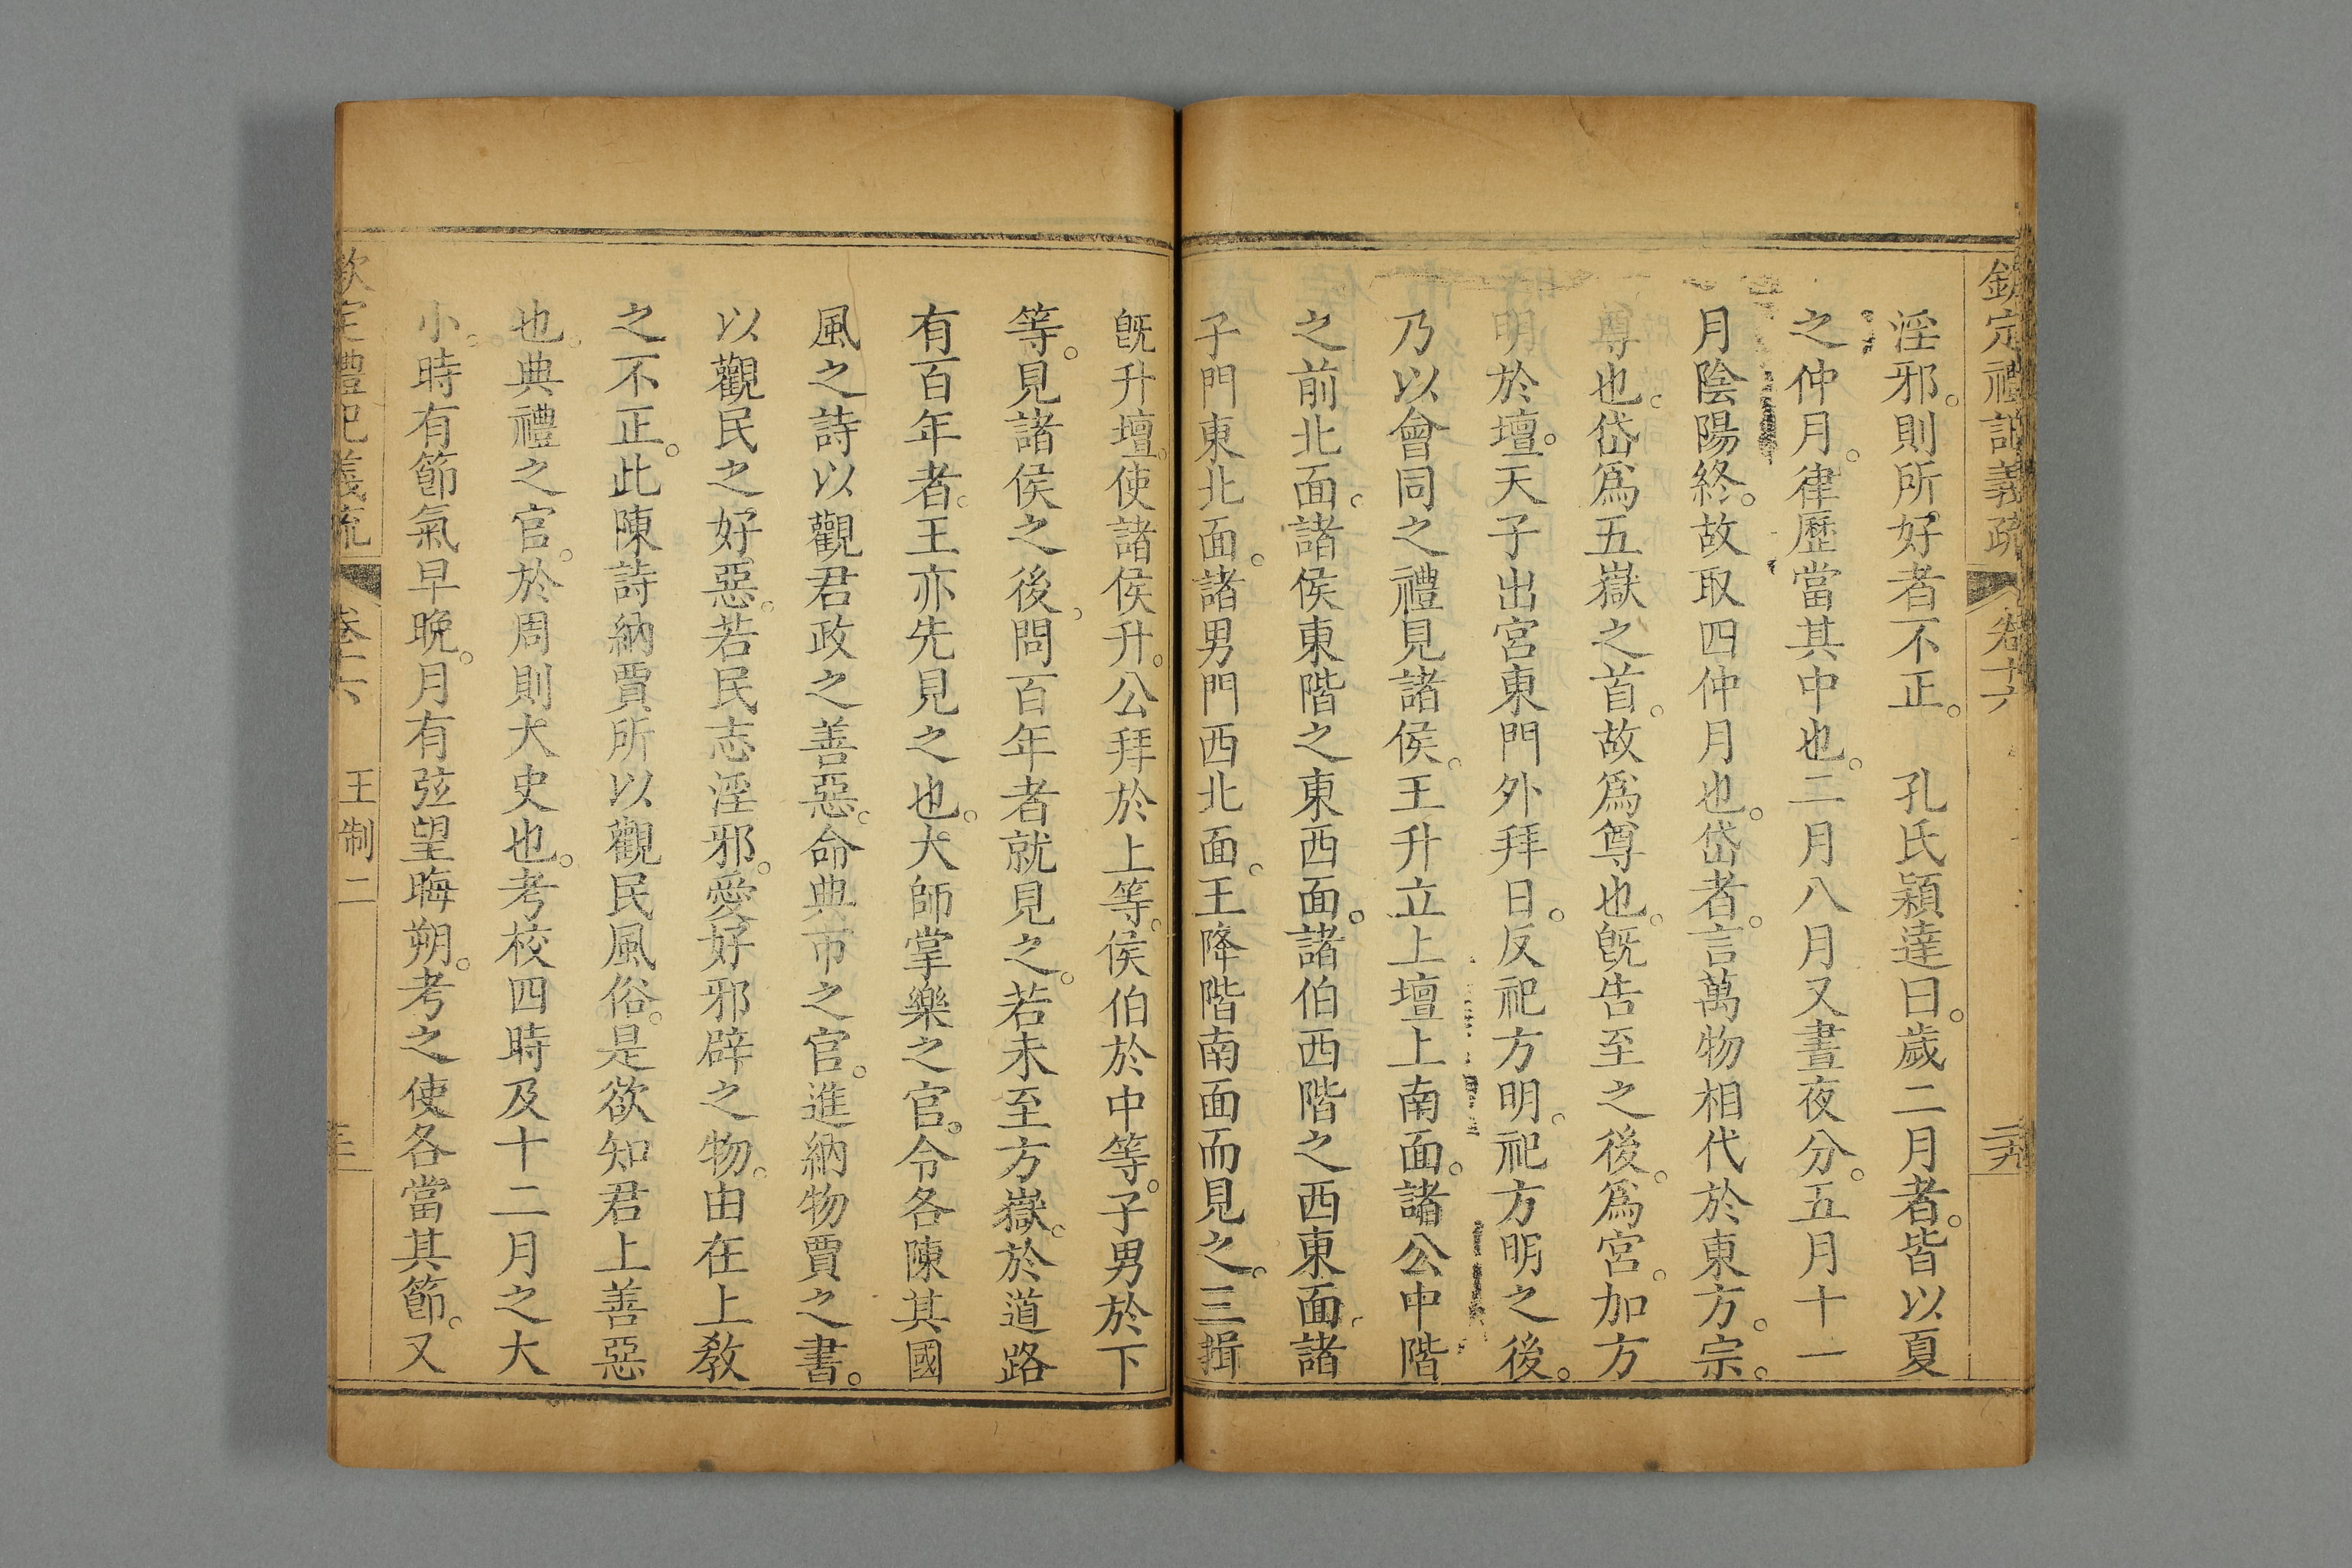 欽定禮記義疏 卷十六 二十九
淫邪。則所好者不正。　孔氏穎達曰。歲二月者。皆以夏
之仲月。律歷當其中也。二月八月又晝夜分。五月十一
月陰陽終。故取四仲月也。岱者。言萬物相代於東方。宗。
尊也。岱爲五嶽之首。故爲尊也。旣告至之後。爲宮。加方
明於壇。天子出宮東門外拜日。反祀方明。祀方明之後。
乃以會同之禮見諸侯。王升立上壇上南面。諸公中階
之前北面。諸侯東階之東西面。諸伯西階之西東面。諸
子門東北面。諸男門西北面。王降階南面而見之。三揖
旣升壇。使諸侯升。公拜於上等。侯伯於中等。子男於下
等。見諸侯之後。問百年者就見之。若未至方嶽。於道路
有百年者。王亦先見之也。大師掌樂之官。令各陳其國
風之詩以觀君政之善惡。命典市之官。進納物賈之書。
以觀民之好惡。若民志淫邪。愛好邪辟之物。由在上敎
之不正。此陳詩納賈所以觀民風俗。是欲知君上善惡
也。典禮之官。於周則大史也。考校四時及十二月之大
小。時有節氣早晚。月有弦望晦朔。考之使各當其節。又
欽定禮記義疏 卷十六 王制二